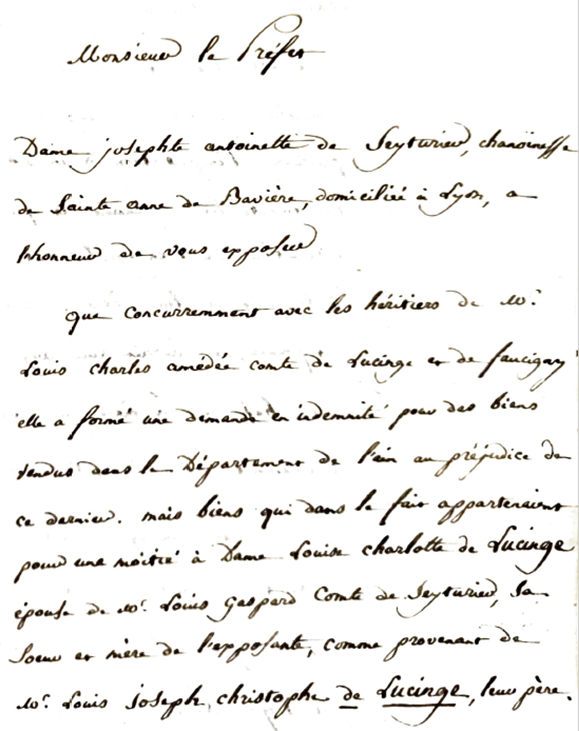 Monsieur le Préfet
Dame josephte antoinette de Seyturier, chanoinesse
de Sainte anne de Bavière, domiciliée à Lyon, a
lhonneur de vous exposer
que concurremment avec les héritiers de Mr.
Louis charles amédée comte de Lucinge et de faucigny
elle a formé une demande en indemnité pour des biens
vendus dans le Département de l'ain au préjudice de
ce dernier. mais biens qui dans le fait appartenaient
pour une moitié à Dame Louise charlotte de Lucinge
épouse de Mr. Louis Gaspard Comte de Seyturier, sa
Soeur et mère de l'exposante, comme provenant de
Mr. Louis Joseph christophe de Lucinge, leur père.